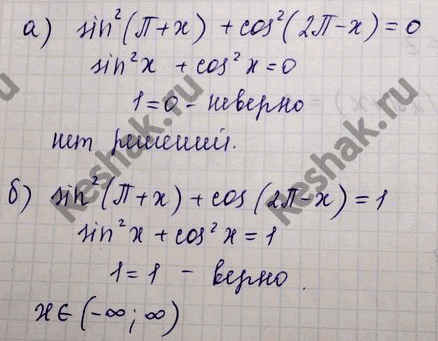 а) sin²(П+x) + cos²(2П-x)=0
sin²x + cos²x=0
1=0 - неверно
нет решений.
б) sin²(П+x) + cos(2П-x)=1
sin²x + cos²x=1
1=1 - верно.
x∈(-∞;∞)
keshak.ru